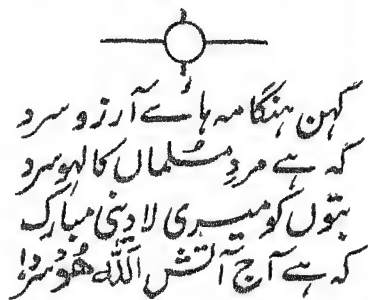 کہن ہنگامہ ہائے آرزو سرد
کہ ہے مردِ مسلماں کا لہو سرد
بتوں کو میری لادینی مبارک
کہ ہے آج آتشِ اَللہ ھُو سرد!